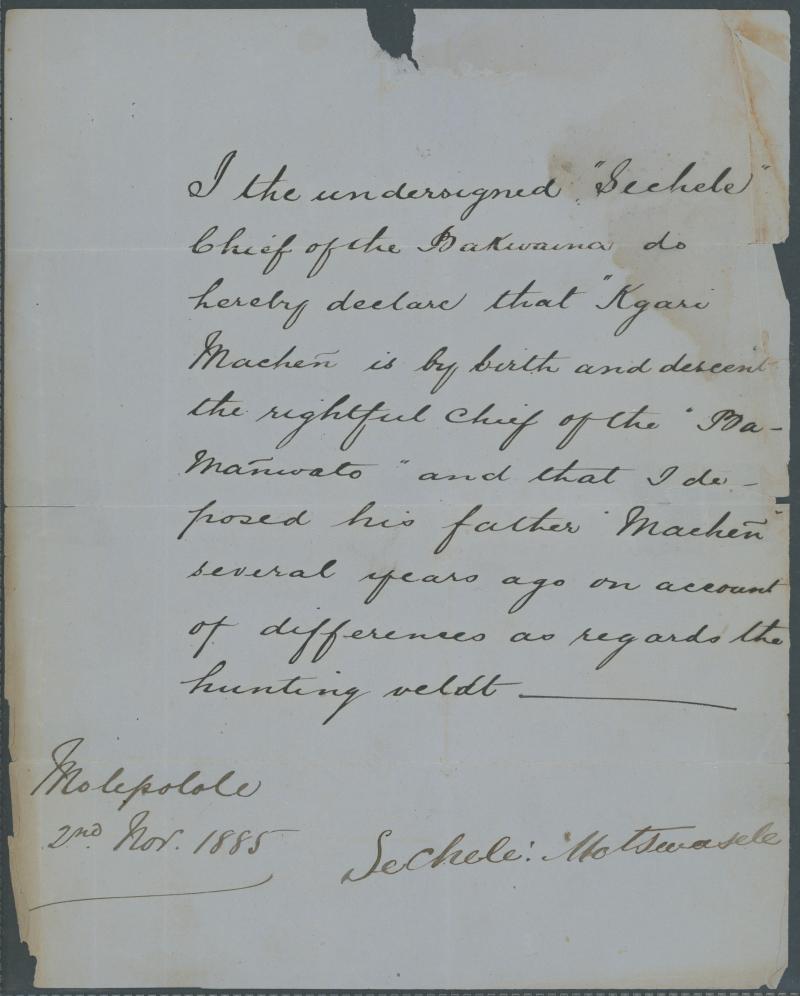 I the undersigned "Sechele"
Chief of the Bakwaina do
hereby declare that "Kgari
Macheñ is by birth and descent
the rightful Chief of the "Ba-
Mañwato" and that I de-
posed his father "Macheñ"
several years ago on account
of differences as regards the
hunting veldt
Molepolole
2nd Nov. 1885
Sechele: Motswasele